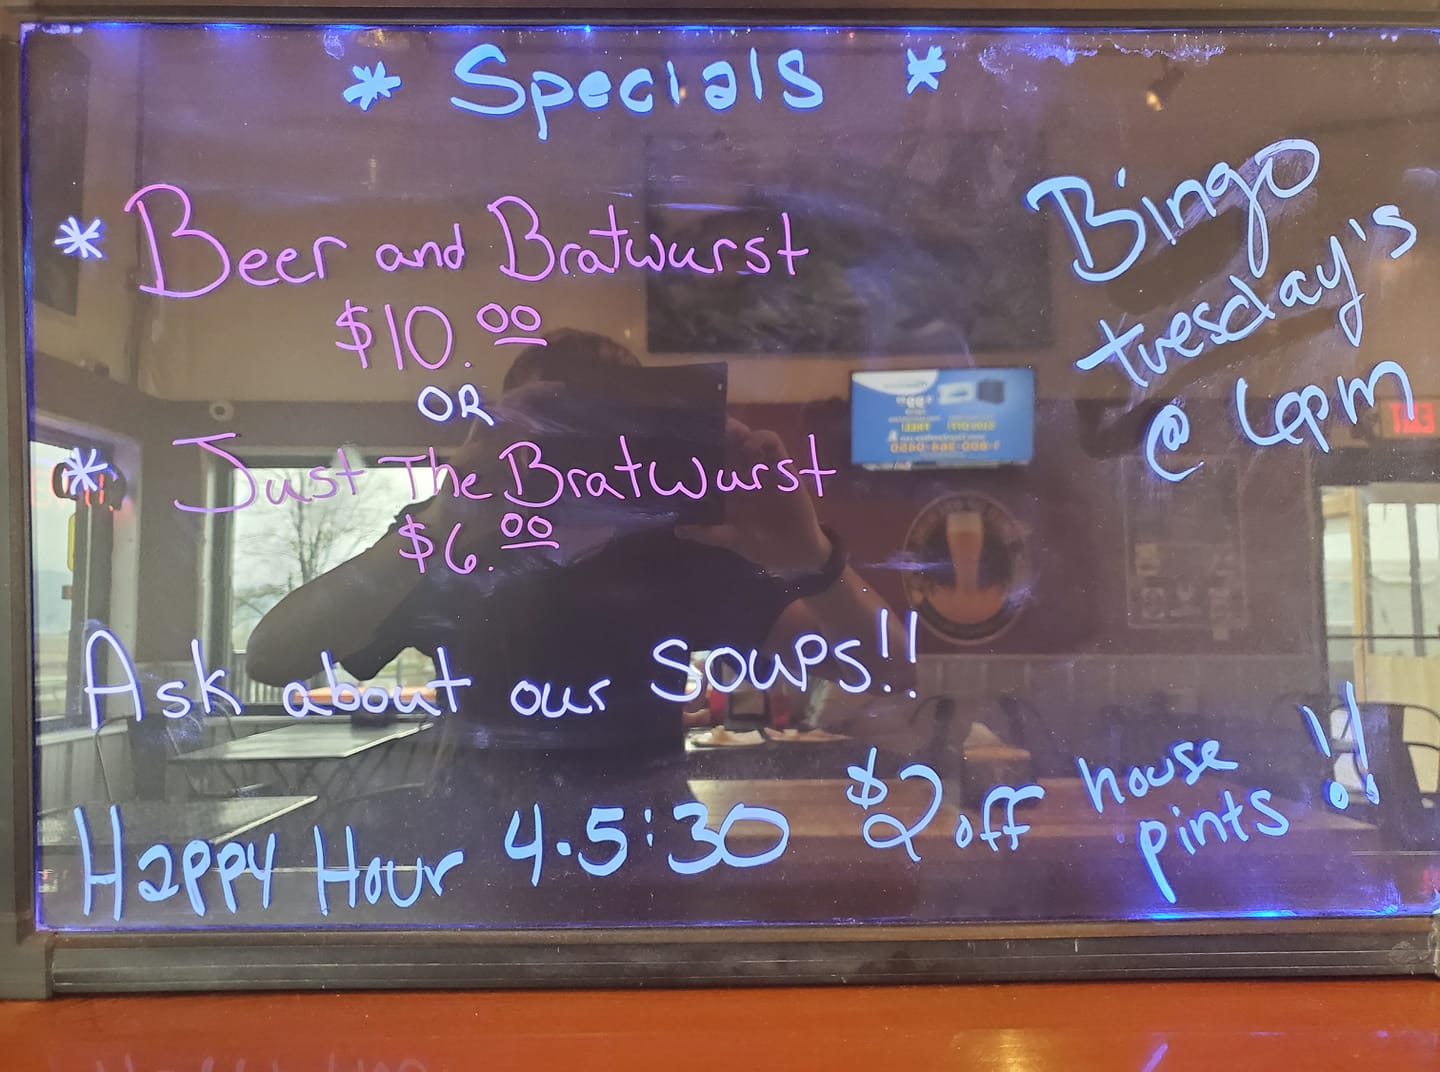 * Specials *
* Beer and Bratwurst
$10.00
OR
* Just The Bratwurst
$6.00
Ask about our SOUPS!!
Happy Hour 4-5:30 $2 off house pints !!
Bingo
tuesday's
@ 6pm